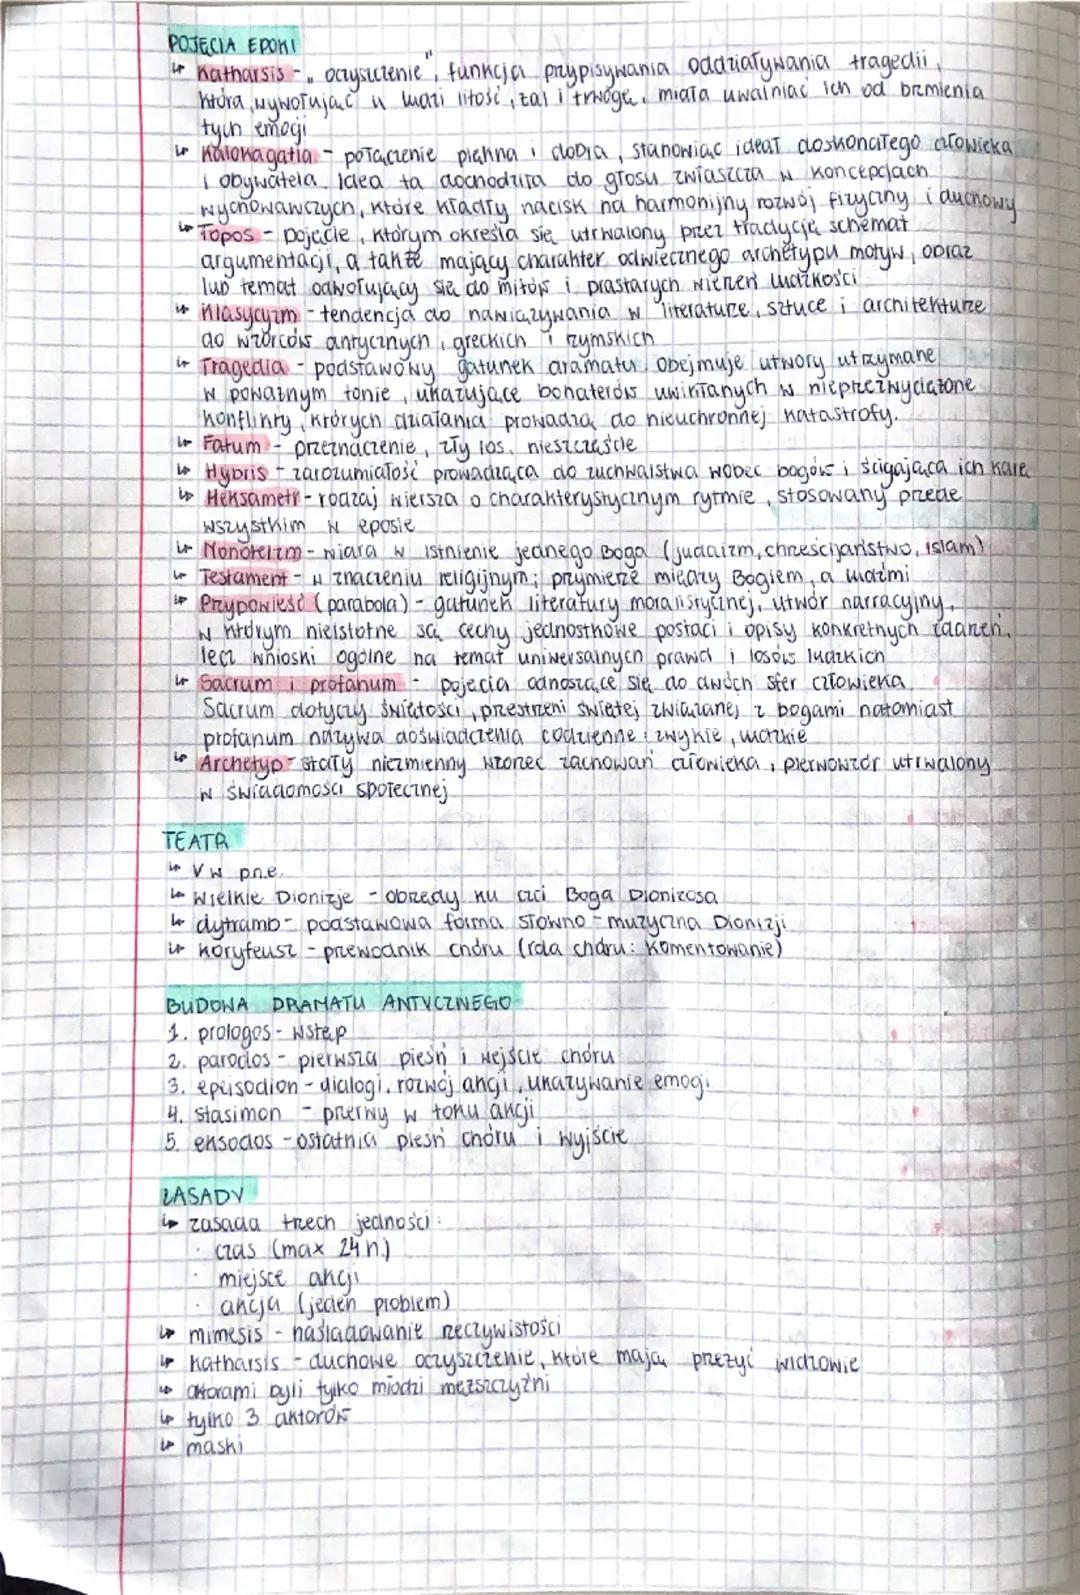 POJĘCIA EPOKI
↳ Katharsis - „oczyszczenie", funkcja przypisywania oddziaływania tragedii,
która wywołując u ludzi litość, żal i trwogę, miała uwalniać ich od brzmienia
tych emocji
↳ Kalokagatia - połączenie piękna i dobra, stanowiąc ideał doskonałego człowieka
i obywatela. Idea ta dochodziła do głosu zwłaszcza w koncepcjach
wychowawczych, które kładły nacisk na harmonijny rozwój fizyczny i duchowy
↳ Topos - pojęcie, którym określa się utrwalony przez tradycję schemat
argumentacji, a także mający charakter odwiecznego archetypu motyw, obraz
lub temat odwołujący się do mitów i prastarych wierzeń ludzkości
↳ Klasycyzm - tendencja do nawiązywania w literaturze, sztuce i architekturze
do wzorców antycznych, greckich i rzymskich
↳ Tragedia - podstawowy gatunek dramatu. Obejmuje utwory utrzymane
w poważnym tonie, ukazujące bohaterów uwikłanych w nieprzezwyciężone
konflikty, których działania prowadzą do nieuchronnej katastrofy.
↳ Fatum - przeznaczenie, zły los, nieszczęście
↳ Hybris - zarozumiałość prowadząca do zuchwalstwa wobec bogów i ścigająca ich karę
↳ Heksametr - rodzaj wiersza o charakterystycznym rytmie, stosowany przede
wszystkim w eposie
↳ Monoteizm - wiara w istnienie jednego Boga (judaizm, chrześcijaństwo, islam)
↳ Testament - w znaczeniu religijnym; przymierze między Bogiem, a ludźmi
↳ Przypowieść (parabola) - gatunek literatury moralistycznej, utwór narracyjny,
w którym nieistotne są cechy jednostkowe postaci i opisy konkretnych zdarzeń,
lecz wnioski ogólne na temat uniwersalnych prawd i losów ludzkich
↳ Sacrum i profanum - pojęcia odnoszące się do dwóch sfer człowieka
Sacrum dotyczy świętości, przestrzeni świętej związanej z bogami natomiast
profanum nazywa doświadczenia codzienne i zwykłe, ludzkie
↳ Archetyp - stały niezmienny wzorzec zachowań człowieka, pierwowzór utrwalony
w świadomości społecznej
TEATR
↳ V w p.n.e.
↳ Wielkie Dionizje - obrzędy ku czci Boga Dionizosa
↳ dytramb - podstawowa forma słowno-muzyczna Dionizji
↳ koryfeusz - przewodnik chóru (rola chóru: komentowanie)
BUDOWA DRAMATU ANTYCZNEGO
1. prologos - wstęp
2. parodos - pierwsza pieśń i wejście chóru
3. epeisodion - dialogi, rozwój akcji, ukazywanie emocji
4. stasimon - przerwy w toku akcji
5. eksodos - ostatnia pieśń chóru i wyjście
ZASADY
↳ zasada trzech jedności:
· czas (max 24h)
· miejsce akcji
· akcja (jeden problem)
↳ mimesis - naśladowanie rzeczywistości
↳ katharsis - duchowe oczyszczenie, które mają przeżyć widzowie
↳ aktorami byli tylko młodzi męższczyźni
↳ tylko 3 aktorów
↳ maski